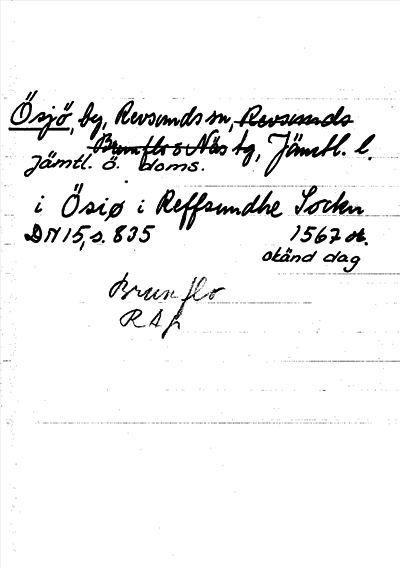 Ösjö, by, Revsunds sn, Revsunds
Brunflo o Näs tg, Jämtl. l.
Jämtl. ö. doms.
i Ösiø i Reffsundhe Sockn
DN 15, s. 835 1567
okänd dag
Brunflo